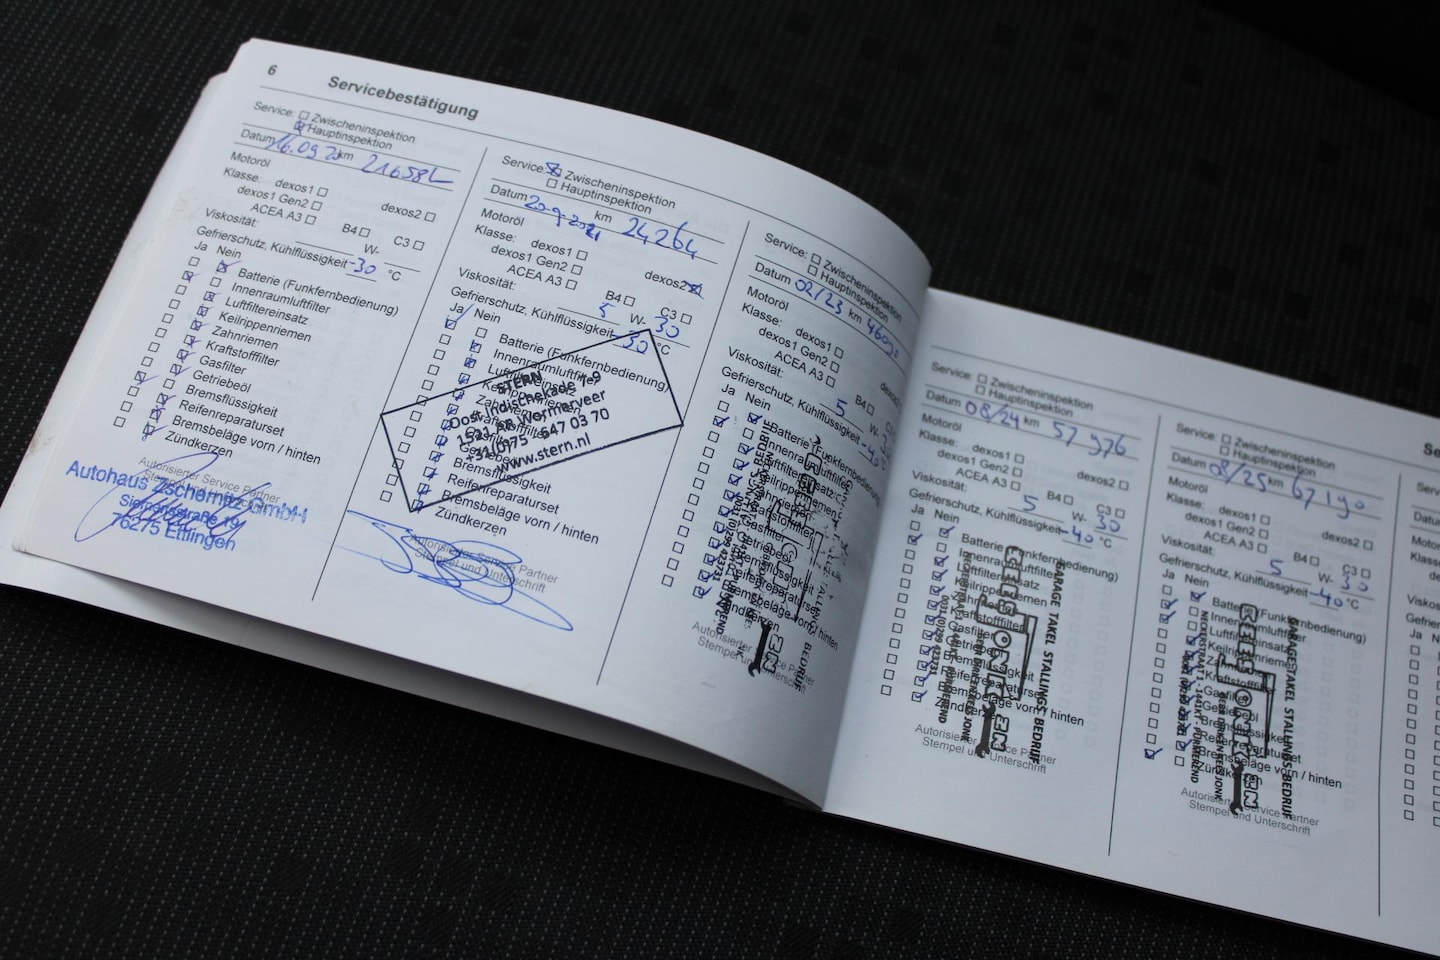 6
Servicebestätigung
Service: Zwischeninspektion
Hauptinspektion
Datum 16.09 km 21658
Motoröl
Klasse: dexos1
dexos1 Gen2 dexos2
ACEA A3 B4 C3
Viskosität: W-
Gefrierschutz, Kühlflüssigkeit -30 °C
Ja Nein
Batterie (Funkfernbedienung)
Innenraumluftfilter
Luftfiltereinsatz
Keilrippenriemen
Zahnriemen
Kraftstofffilter
Gasfilter
Getriebeöl
Bremsflüssigkeit
Reifenreparaturset
Bremsbeläge vorn / hinten
Zündkerzen
Autorisierter Service Partner
Stempel und Unterschrift
Autohaus Zschernitz GmbH
Siemensstraße 19
76275 Ettlingen
Service: Zwischeninspektion
Hauptinspektion
Datum 20-9-2021 km 24264
Motoröl
Klasse: dexos1
dexos1 Gen2 dexos2
ACEA A3 B4 C3
Viskosität: 5 W- 30
Gefrierschutz, Kühlflüssigkeit -30 °C
Ja Nein
Batterie (Funkfernbedienung)
Innenraumluftfilter
Luftfiltereinsatz
Keilrippenriemen
Zahnriemen
Kraftstofffilter
Gasfilter
Getriebeöl
Bremsflüssigkeit
Reifenreparaturset
Bremsbeläge vorn / hinten
Zündkerzen
STERN
Oost-Indischekade 7-9
1521 AR Wormerveer
+31(0)75 - 647 03 70
www.stern.nl
Autorisierter Service Partner
Stempel und Unterschrift
Service: Zwischeninspektion
Hauptinspektion
Datum 02/23 km 46090
Motoröl
Klasse: dexos1
dexos1 Gen2 dexos2
ACEA A3 B4
Viskosität: 5 W-
Gefrierschutz, Kühlflüssigkeit -40 °C
Ja Nein
Batterie (Funkfernbedienung)
Innenraumluftfilter
Luftfiltereinsatz
Keilrippenriemen
Zahnriemen
Kraftstofffilter
Gasfilter
Getriebeöl
Bremsflüssigkeit
Reifenreparaturset
Bremsbeläge vorn / hinten
Zündkerzen
Autorisierter Service Partner
Stempel und Unterschrift
Service: Zwischeninspektion
Hauptinspektion
Datum 08/24 km 57976
Motoröl
Klasse: dexos1
dexos1 Gen2 dexos2
ACEA A3 B4 C3
Viskosität: 5 W- 30
Gefrierschutz, Kühlflüssigkeit -40 °C
Ja Nein
Batterie (Funkfernbedienung)
Innenraumluftfilter
Luftfiltereinsatz
Keilrippenriemen
Zahnriemen
Kraftstofffilter
Gasfilter
Getriebeöl
Bremsflüssigkeit
Reifenreparaturset
Bremsbeläge vorn / hinten
Zündkerzen
GARAGE TAKEL STALLINGS BEDRIJF
Autorisierter Service Partner
Stempel und Unterschrift
Service: Zwischeninspektion
Hauptinspektion
Datum 08/25 km 67190
Motoröl
Klasse: dexos1
dexos1 Gen2 dexos2
ACEA A3 B4 C3
Viskosität: 5 W- 30
Gefrierschutz, Kühlflüssigkeit -40 °C
Ja Nein
Batterie (Funkfernbedienung)
Innenraumluftfilter
Luftfiltereinsatz
Keilrippenriemen
Zahnriemen
Kraftstofffilter
Gasfilter
Getriebeöl
Bremsflüssigkeit
Reifenreparaturset
Bremsbeläge vorn / hinten
Zündkerzen
GARAGE TAKEL STALLINGS BEDRIJF
Autorisierter Service Partner
Stempel und Unterschrift